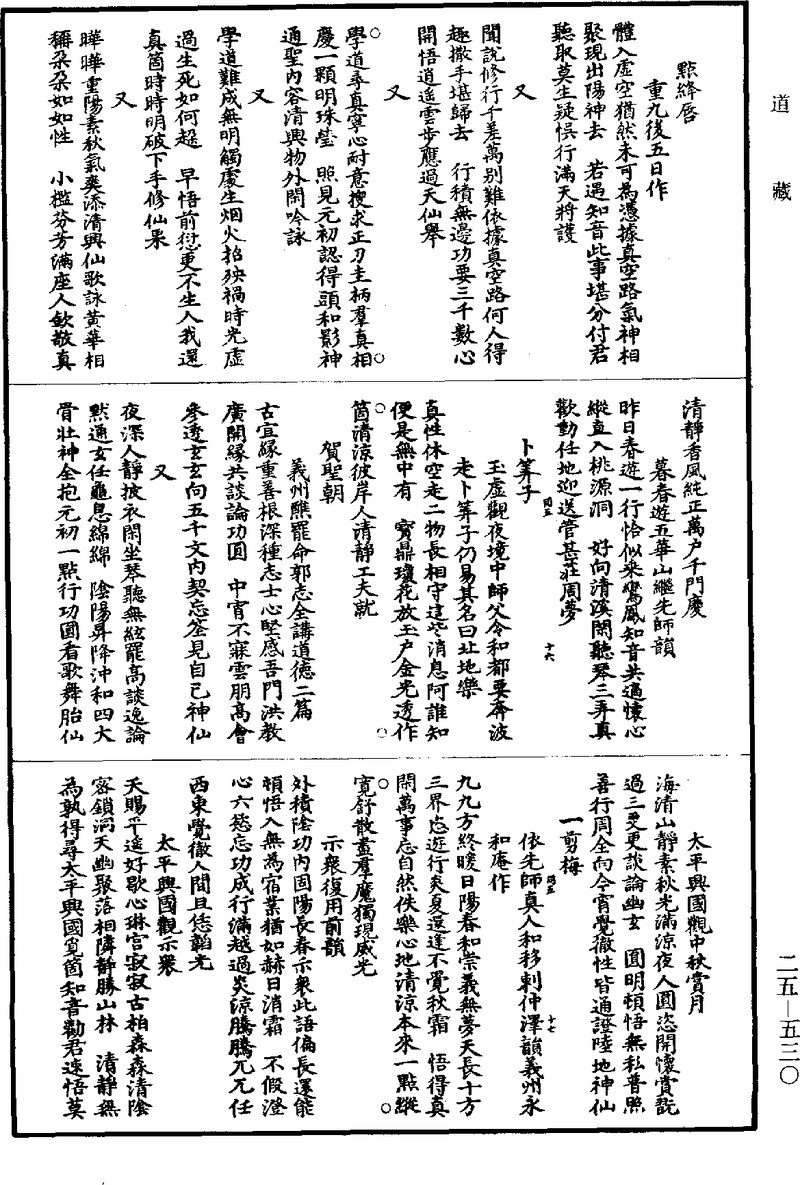 道藏
點絳唇
重九後五日作
體入虛空猶然未可為憑據真空路氣神相
聚現出陽神去　若遇知音此事堪分付君
聽取莫生疑悮行滿天將護
又
聞說修行千差萬別難依據真空路何人得
趣撒手堪歸去　行積無邊功要三千數心
開悟逍遙雲步應過天仙舉
又
學道尋真寧心耐意搜求正刃圭柄羣真相
慶一顆明珠瑩　照見元初認得頭和影神
通聖內容清興物外閑吟詠
又
學道難成無明觸處生烟火招殃禍時光虛
過生死如何趓　早悟前愆更不生人我還
真箇時時明破下手修仙果
又
曄曄重陽素秋氣爽添清興仙歌詠黃華相
稱朶朶如如性　小檻芬芳滿座人欽敬真
清靜香風純正萬户千門慶
暮春遊五華山繼先師韻
昨日春遊一行恰似乘鸞鳳知音共適懷心
縱直入桃源洞　好向清溪閑聽琴三弄真
歡動任地迎送管甚莊周夢
卜筭子
玉虛觀夜境中師父令和都要奔波
走卜筭子仍易其名曰北地樂
真性休空走二物長相守這些消息阿誰知
便是無中有　寳鼎瓊花放玉户金光透作
箇清涼彼岸人清靜工夫就
賀聖朝
義州醮罷命郭志全講道德二篇
古宜緣重善根深種志士心堅感吾門洪教
廣開緣共談論功圓　中宵不寐雲朋高會
參透玄玄向五千文內契忘筌見自己神仙
又
夜深人靜披衣閑坐琴聽無絃罷高談逸論
默通玄任龜息綿綿　陰陽昇降沖和四大
骨壯神全抱元初一點行功圓看歌舞胎仙
太平興國觀中秋賞月
海清山靜素秋光滿涼夜人圓恣開懷賞翫
過三更更談論幽玄　圓明頓悟無私普照
善行周全向今宵覺徹性皆通證陸地神仙
一剪梅
依先師真人和移剌仲澤韻義州永
和庵作
九九方終暖日陽春和崇義無夢天長十方
三界恣遊行炎夏還逢不覺秋霜　悟得真
閑萬事忘自然佚樂心地清涼本來一點縱
寬舒散盡羣魔獨現威光
示衆復用前韻
外積陰功內固陽長春示衆此語偏長還能
頓悟入無為宿業猶如赫日消霜　不假澄
心六慾忘功成行滿越過炎涼騰騰兀兀任
西東覺徹人間且恁韜光
太平興國觀示衆
天賜平遥好歇心琳宮寂寂古柏森森清陰
密鎖洞天幽聚落相隣靜勝山林　清靜無
為孰得尋太平興國覓箇知音勸君速悟莫
二五—五三〇